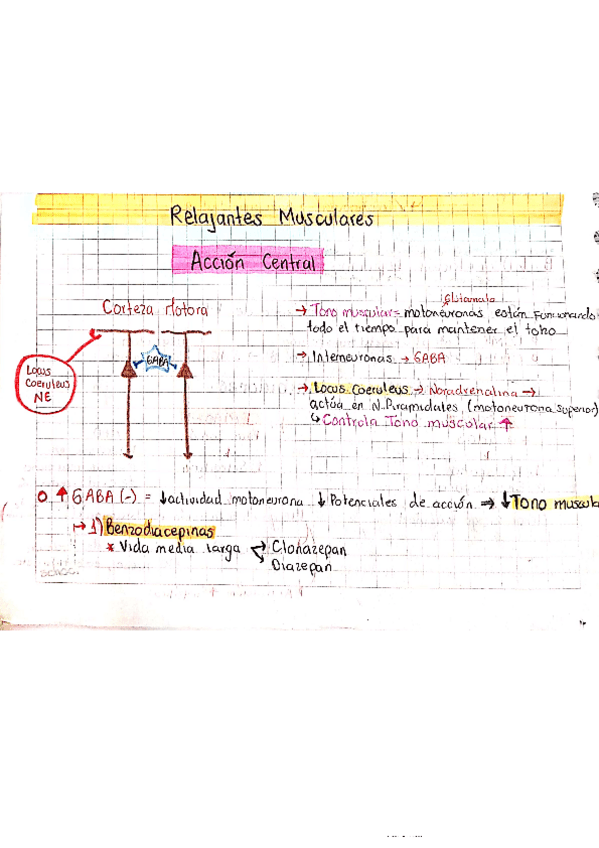 Relajantes Musculares
Acción Central
Corteza Motora
GABA
Locus
Coeruleus
NE
Glutamato
→ Tono muscular = motoneuronas están funcionando
todo el tiempo para mantener el tono
→ Interneuronas → GABA
→ Locus Coeruleus → Noradrenalina →
actúa en N. Piramidales (motoneurona superior)
↳ Controla Tono muscular ↑
O ↑ GABA (-) = ↓ actividad motoneurona ↓ Potenciales de acción ⇒ ↓ Tono muscula
↦ 1) Benzodiacepinas
* Vida media larga Clonazepan
Diazepan